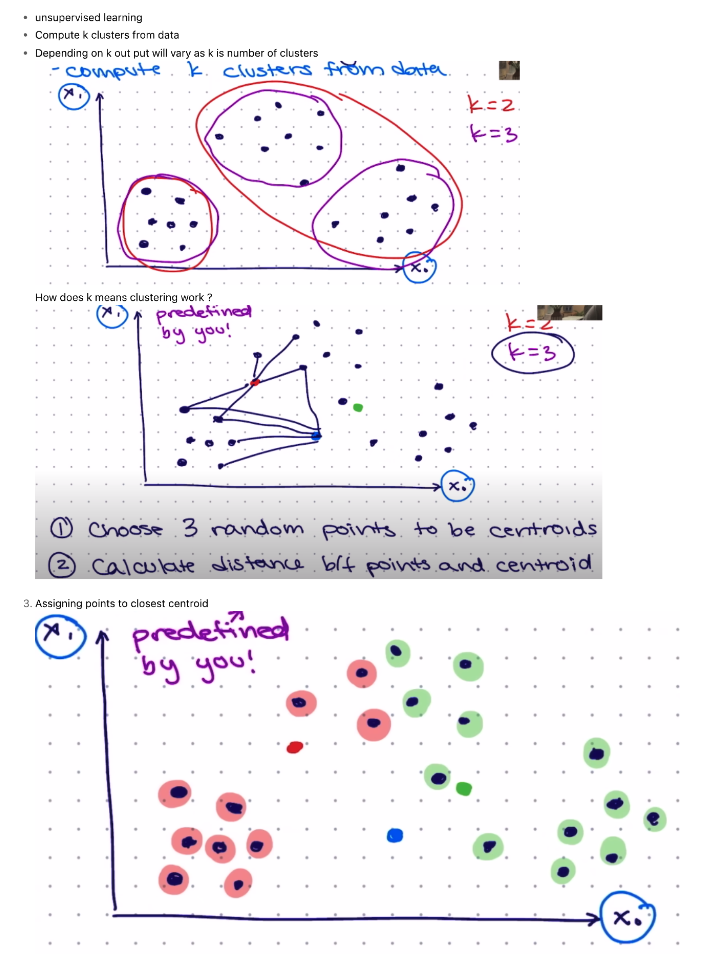 unsupervised learning
Compute k clusters from data
Depending on k out put will vary as k is number of clusters
- compute k clusters from data
x₁
k=2
k=3
x₀
How does k means clustering work ?
x₁ predefined
by you!
k=2
k=3
x₀
① Choose 3 random points to be centroids
② Calculate distance b/t points and centroid
3. Assigning points to closest centroid
x₁ predefined
by you!
x₀